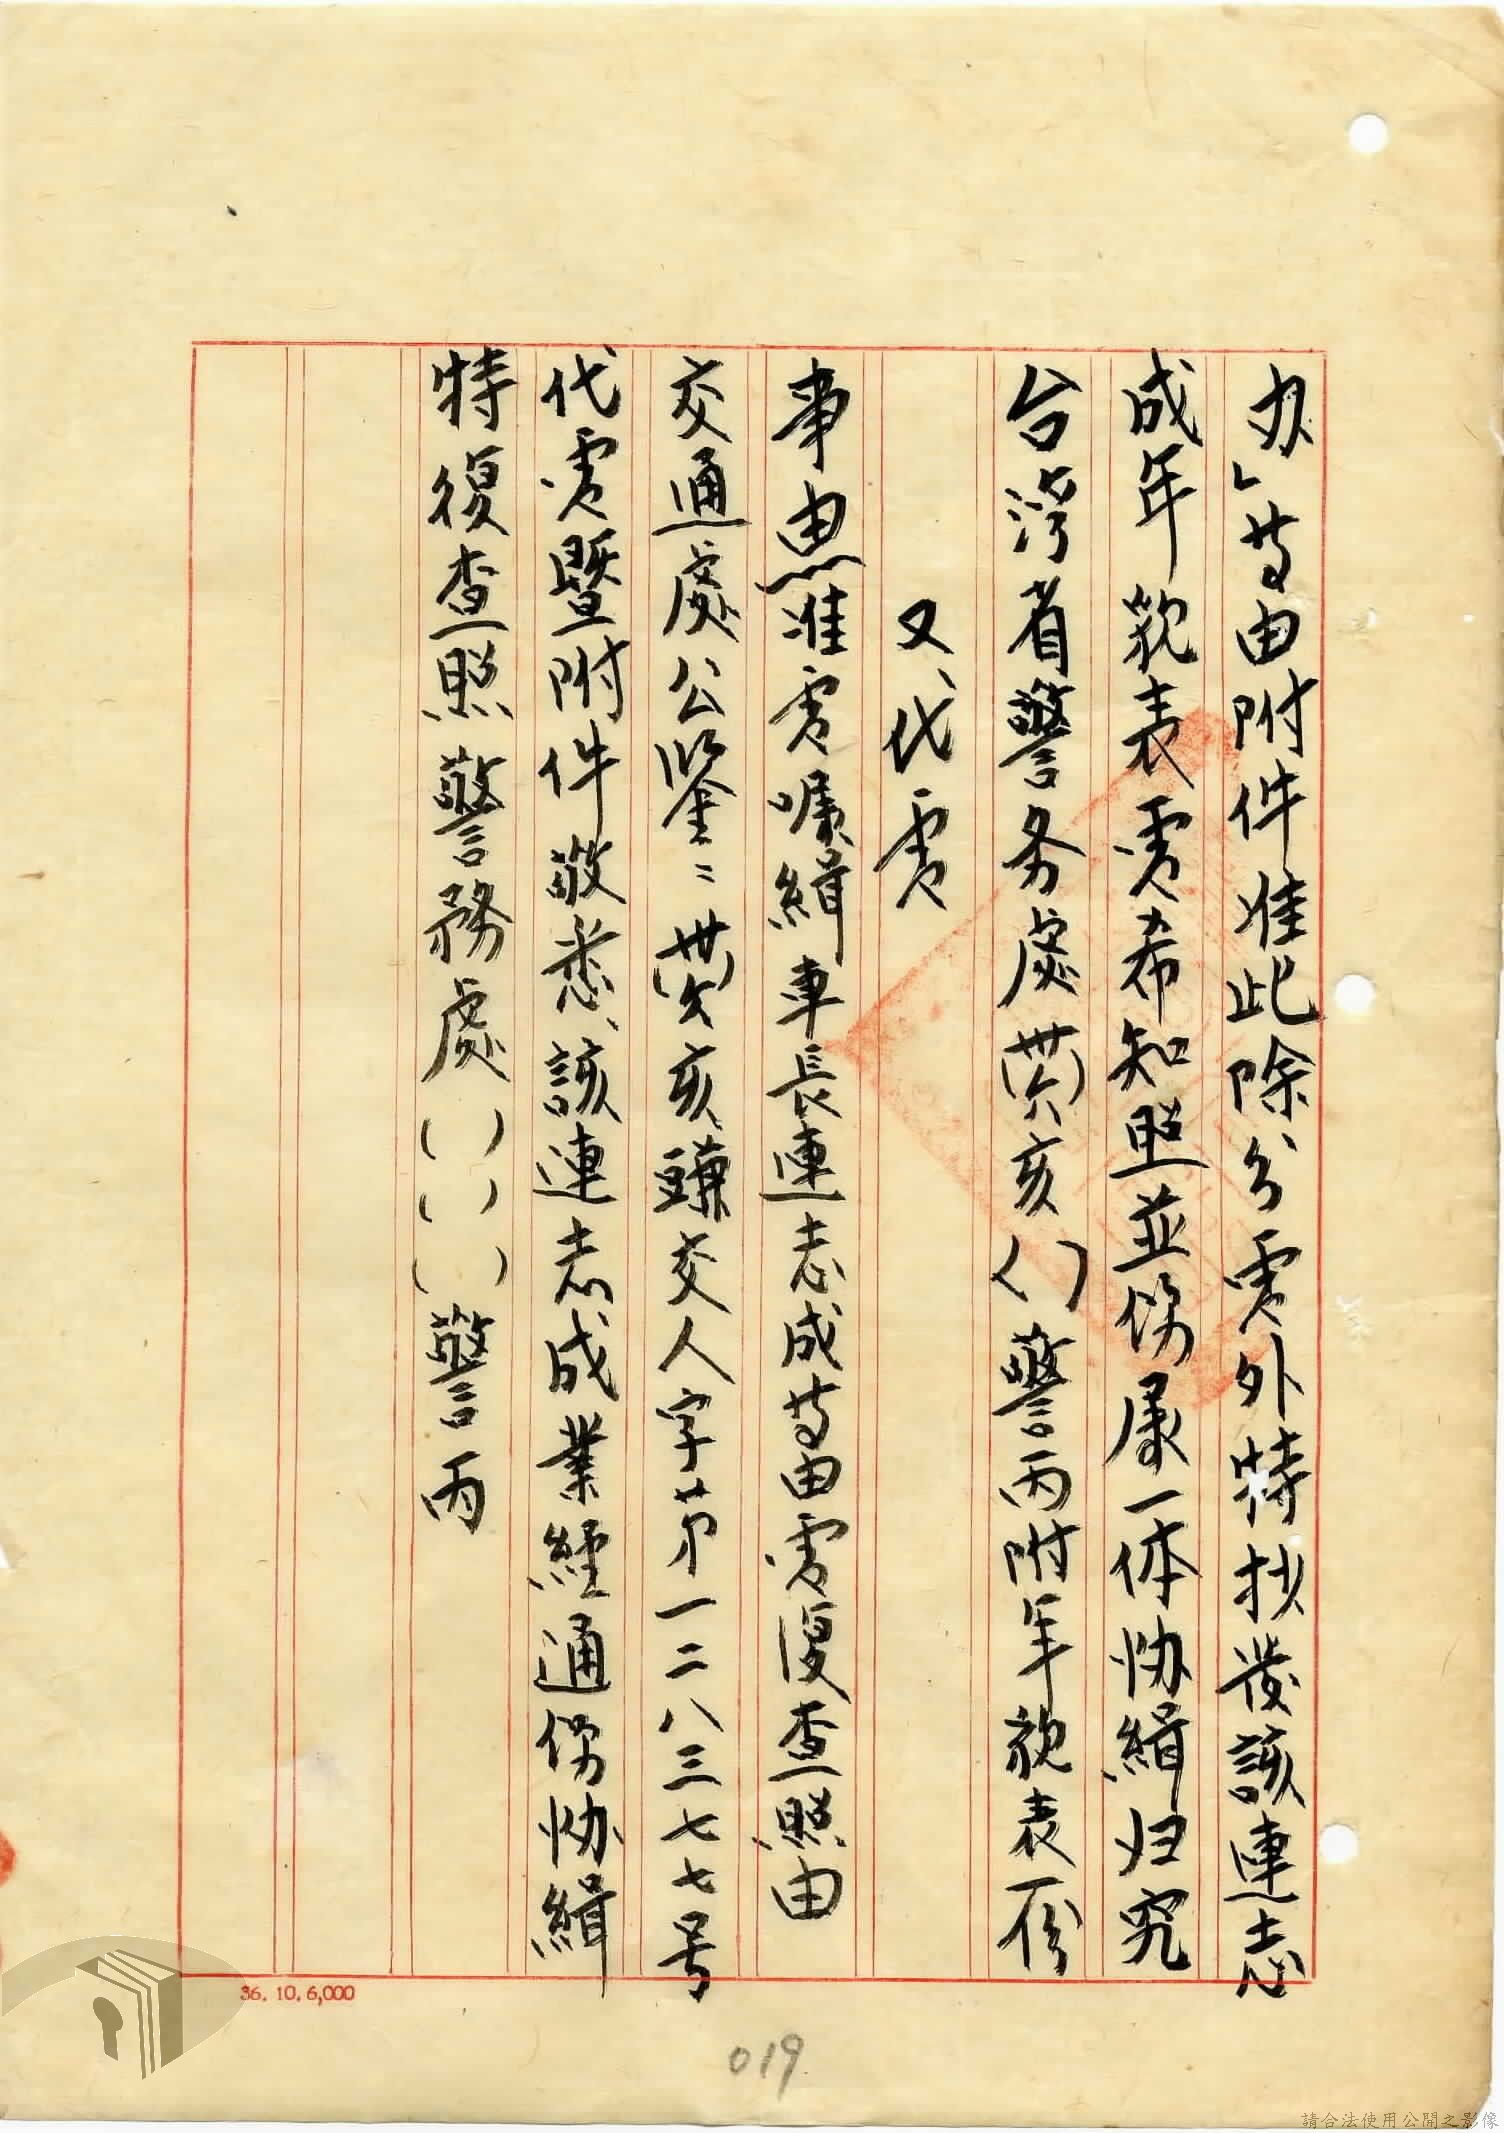 办」等由附件准此除分電外特抄發該連志
成年貌表電希知照並飭屬一体协緝归究
台湾省警务處(卅六)亥( )警丙附年貌表一份
又、代電
事由：為准電嘱緝車長連志成等由電復查照由
交通處公鑒：(卅六)亥 交人字第一二八三七七号
代電暨附件敬悉、該連志成業經通飭协緝
特復查照警務處( )( )( )警丙
36.10.6,000
019
請合法使用公開之影像